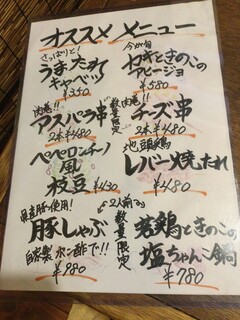 オススメ メニュー
さっぱりと!
うまたれ
キャベツ
¥350
今が旬
カキときのこの
アヒージョ
¥580
肉巻!!
アスパラ串
2本¥480
数量限定
肉巻!!
チーズ串
2本¥480
ペペロンチーノ
風
枝豆 ¥430
レバー焼たれ
¥480
豚しゃぶ
自家製 ポン酢で!!
¥980
2人前
数量限定
若鶏ときのこの
塩ちゃんこ鍋
¥780